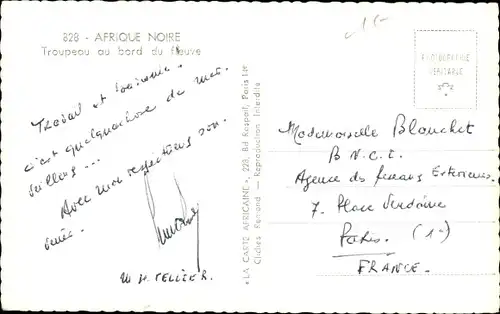 828 - AFRIQUE NOIRE
Troupeau au bord du fleuve
Travail et
c'est quelquechose de mer-
veilleux...
Avec mon respectueux sou-
venir.
W. H. TELLIER.
« LA CARTE AFRICAINE », 229, Bd Raspail, Paris
Clichés Remond — Reproduction Interdite
PHOTOGRAPHIE
VÉRITABLE
Mademoiselle Blanchet
B.N.C.I.
Agence des
7. Place Vendôme
Paris. (1er)
FRANCE.